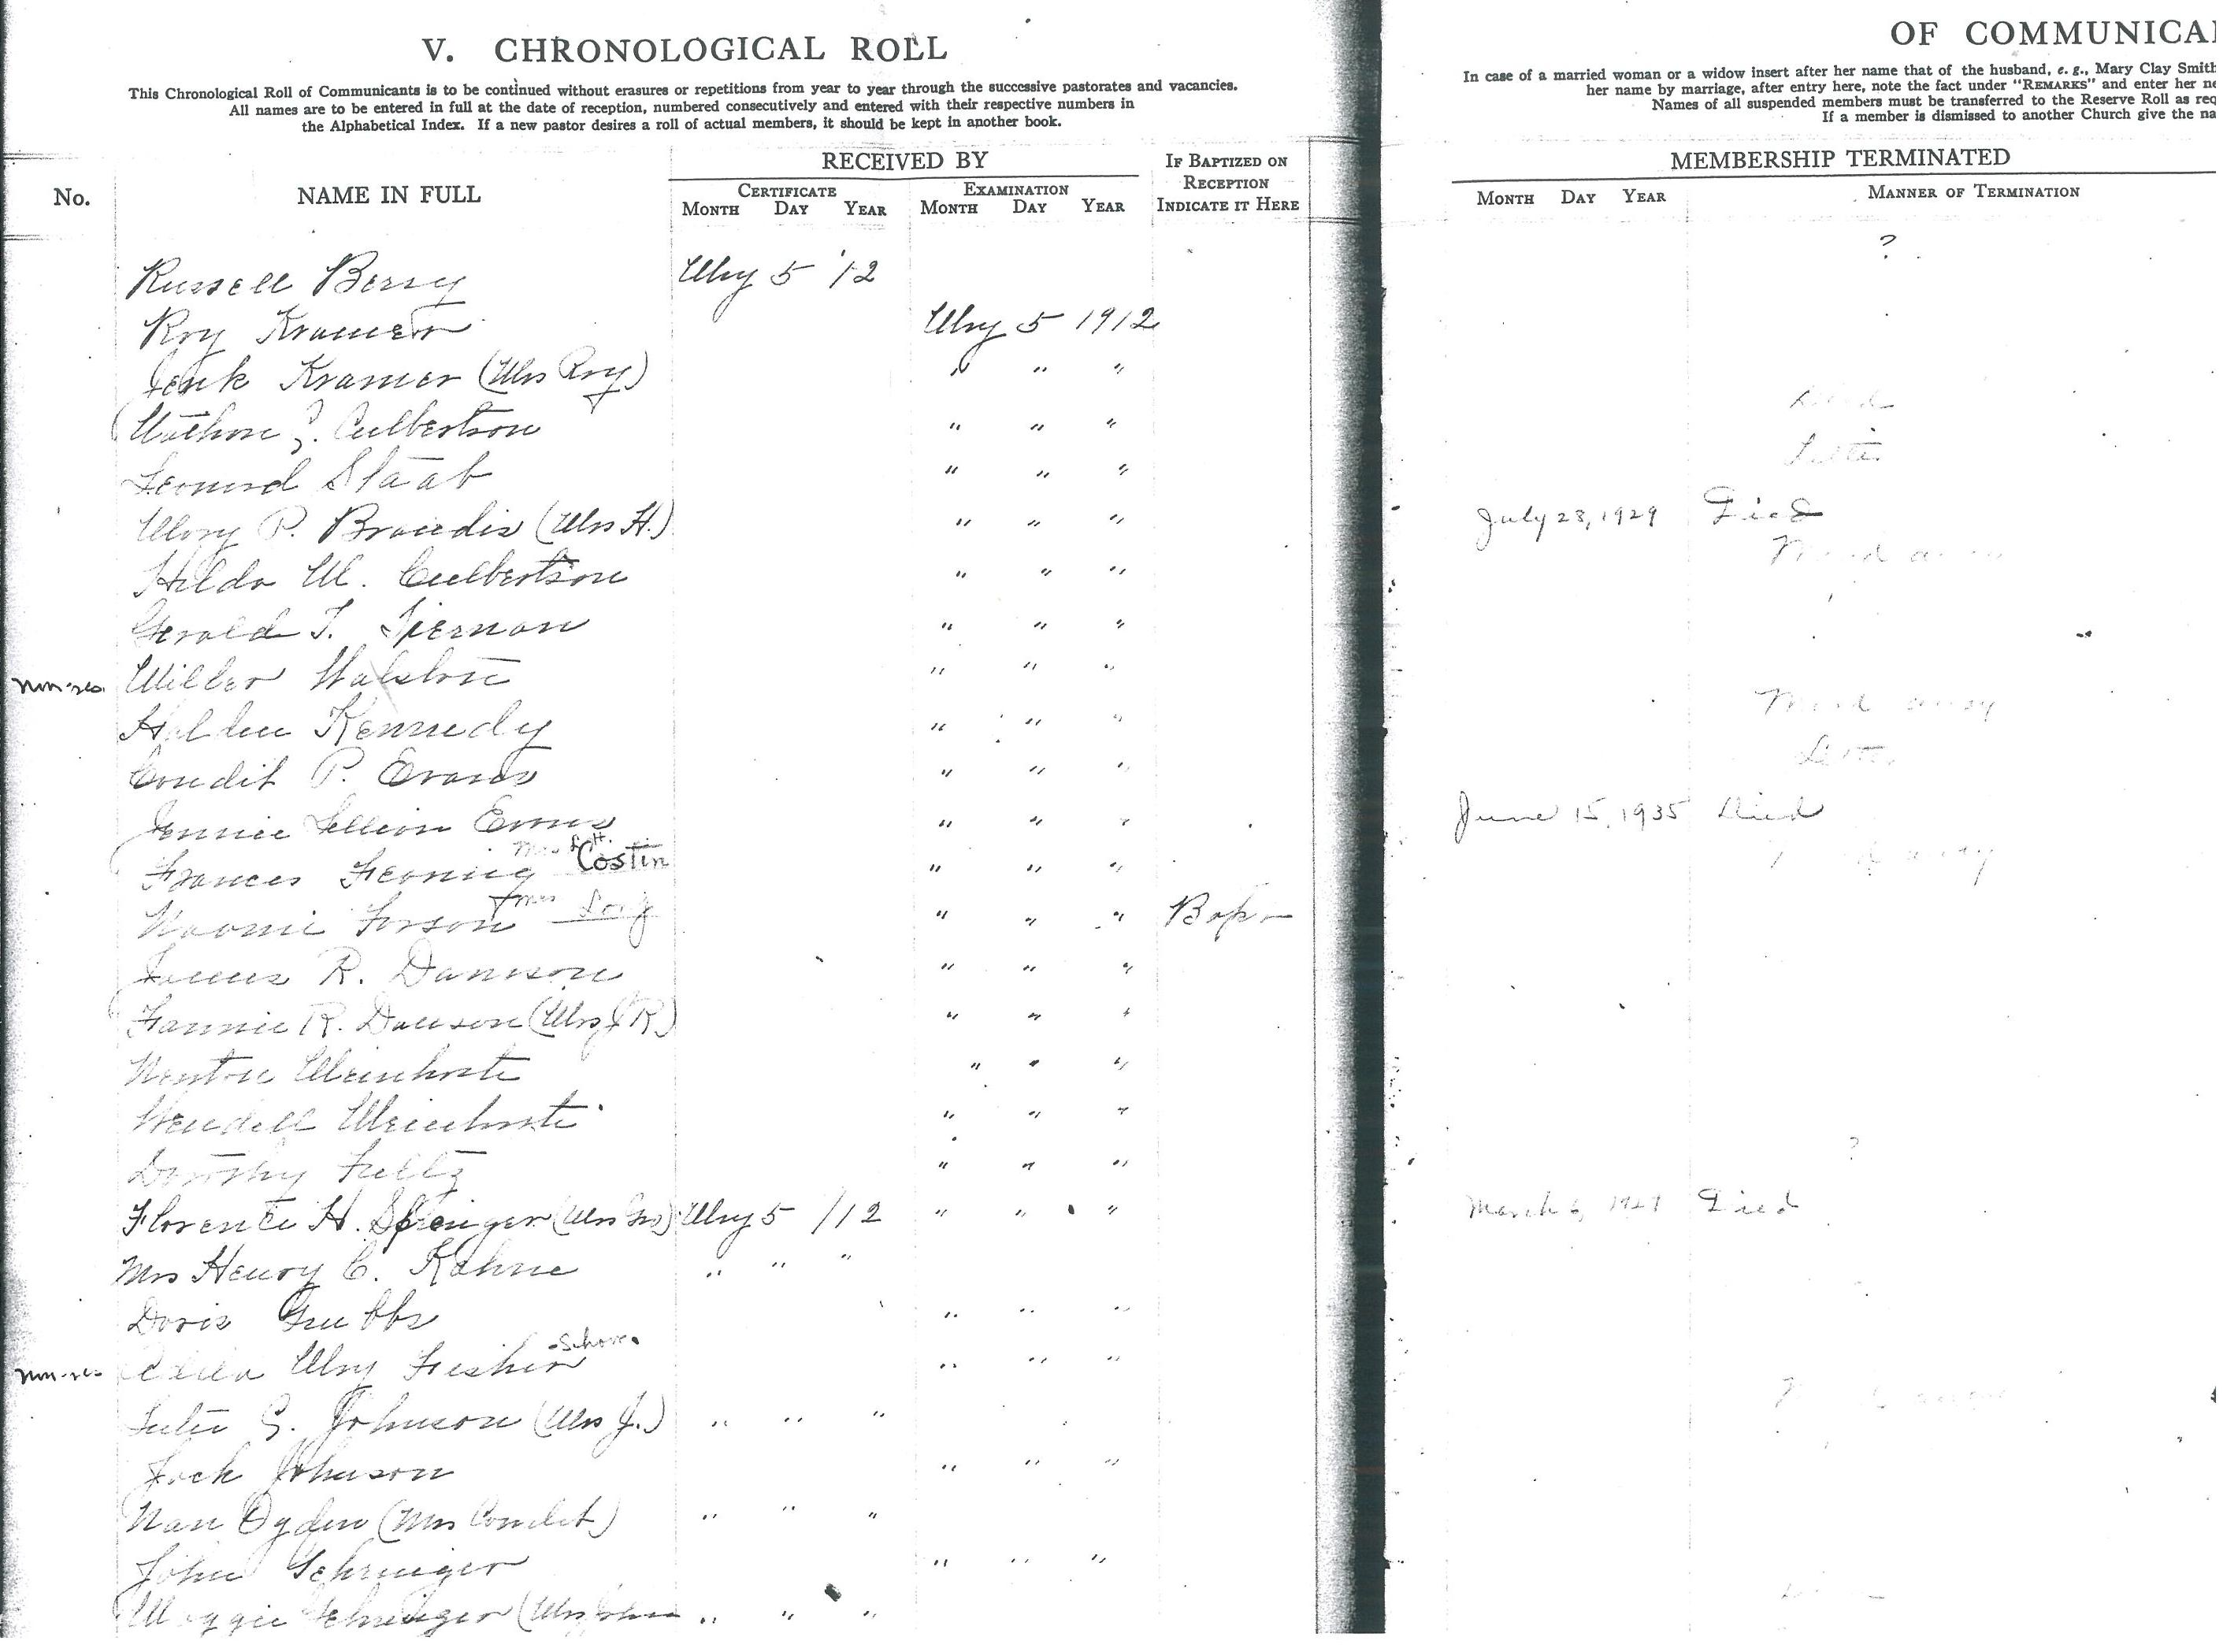 V. CHRONOLOGICAL ROLL
This Chronological Roll of Communicants is to be continued without erasures or repetitions from year to year through the successive pastorates and vacancies.
All names are to be entered in full at the date of reception, numbered consecutively and entered with their respective numbers in
the Alphabetical Index. If a new pastor desires a roll of actual members, it should be kept in another book.
OF COMMUNICA
In case of a married woman or a widow insert after her name that of the husband, e. g., Mary Clay Smith
her name by marriage, after entry here, note the fact under "REMARKS" and enter her ne
Names of all suspended members must be transferred to the Reserve Roll as req
If a member is dismissed to another Church give the na
No. NAME IN FULL RECEIVED BY IF BAPTIZED ON RECEPTION INDICATE IT HERE MEMBERSHIP TERMINATED
CERTIFICATE EXAMINATION
MONTH DAY YEAR MONTH DAY YEAR MONTH DAY YEAR MANNER OF TERMINATION
Russell Berry May 5 '12 ?
Roy Kramer May 5 1912
Kramer (Mrs Roy) " " "
Culbertson " " "
Leonard Staab " " " Letter
Mary P. Brandis (Mrs H.) " " " July 23, 1929 Died
Hilda M. Culbertson " " " Moved away
Gerald T. " " "
non-res. Miller Walston " " "
Holden Kennedy " " " Moved away
Condit P. Evans " " " Letter
Jennie Evans " " " June 15, 1935 Died
Frances Mrs L.H. Costin " " " away
Naomie Mrs Long " " " Bap
James R. Dawson " " "
Fannie R. Dawson (Mrs J R) " " "
" " "
Wendell " " "
Dorothy Fultz " " " ?
Florence H. Springer (Mrs Geo) May 5 /12 " " " March 6, Died
Mrs Henry C. Kahne " " "
Doris Grubbs " " "
non-res May Fisher " " "
Johnson (Mrs J.) " " "
Jack Johnson " " "
Nan Ogden (Mrs Condit) " " "
John Gehringer " " "
Maggie Gehringer (Mrs John " " "